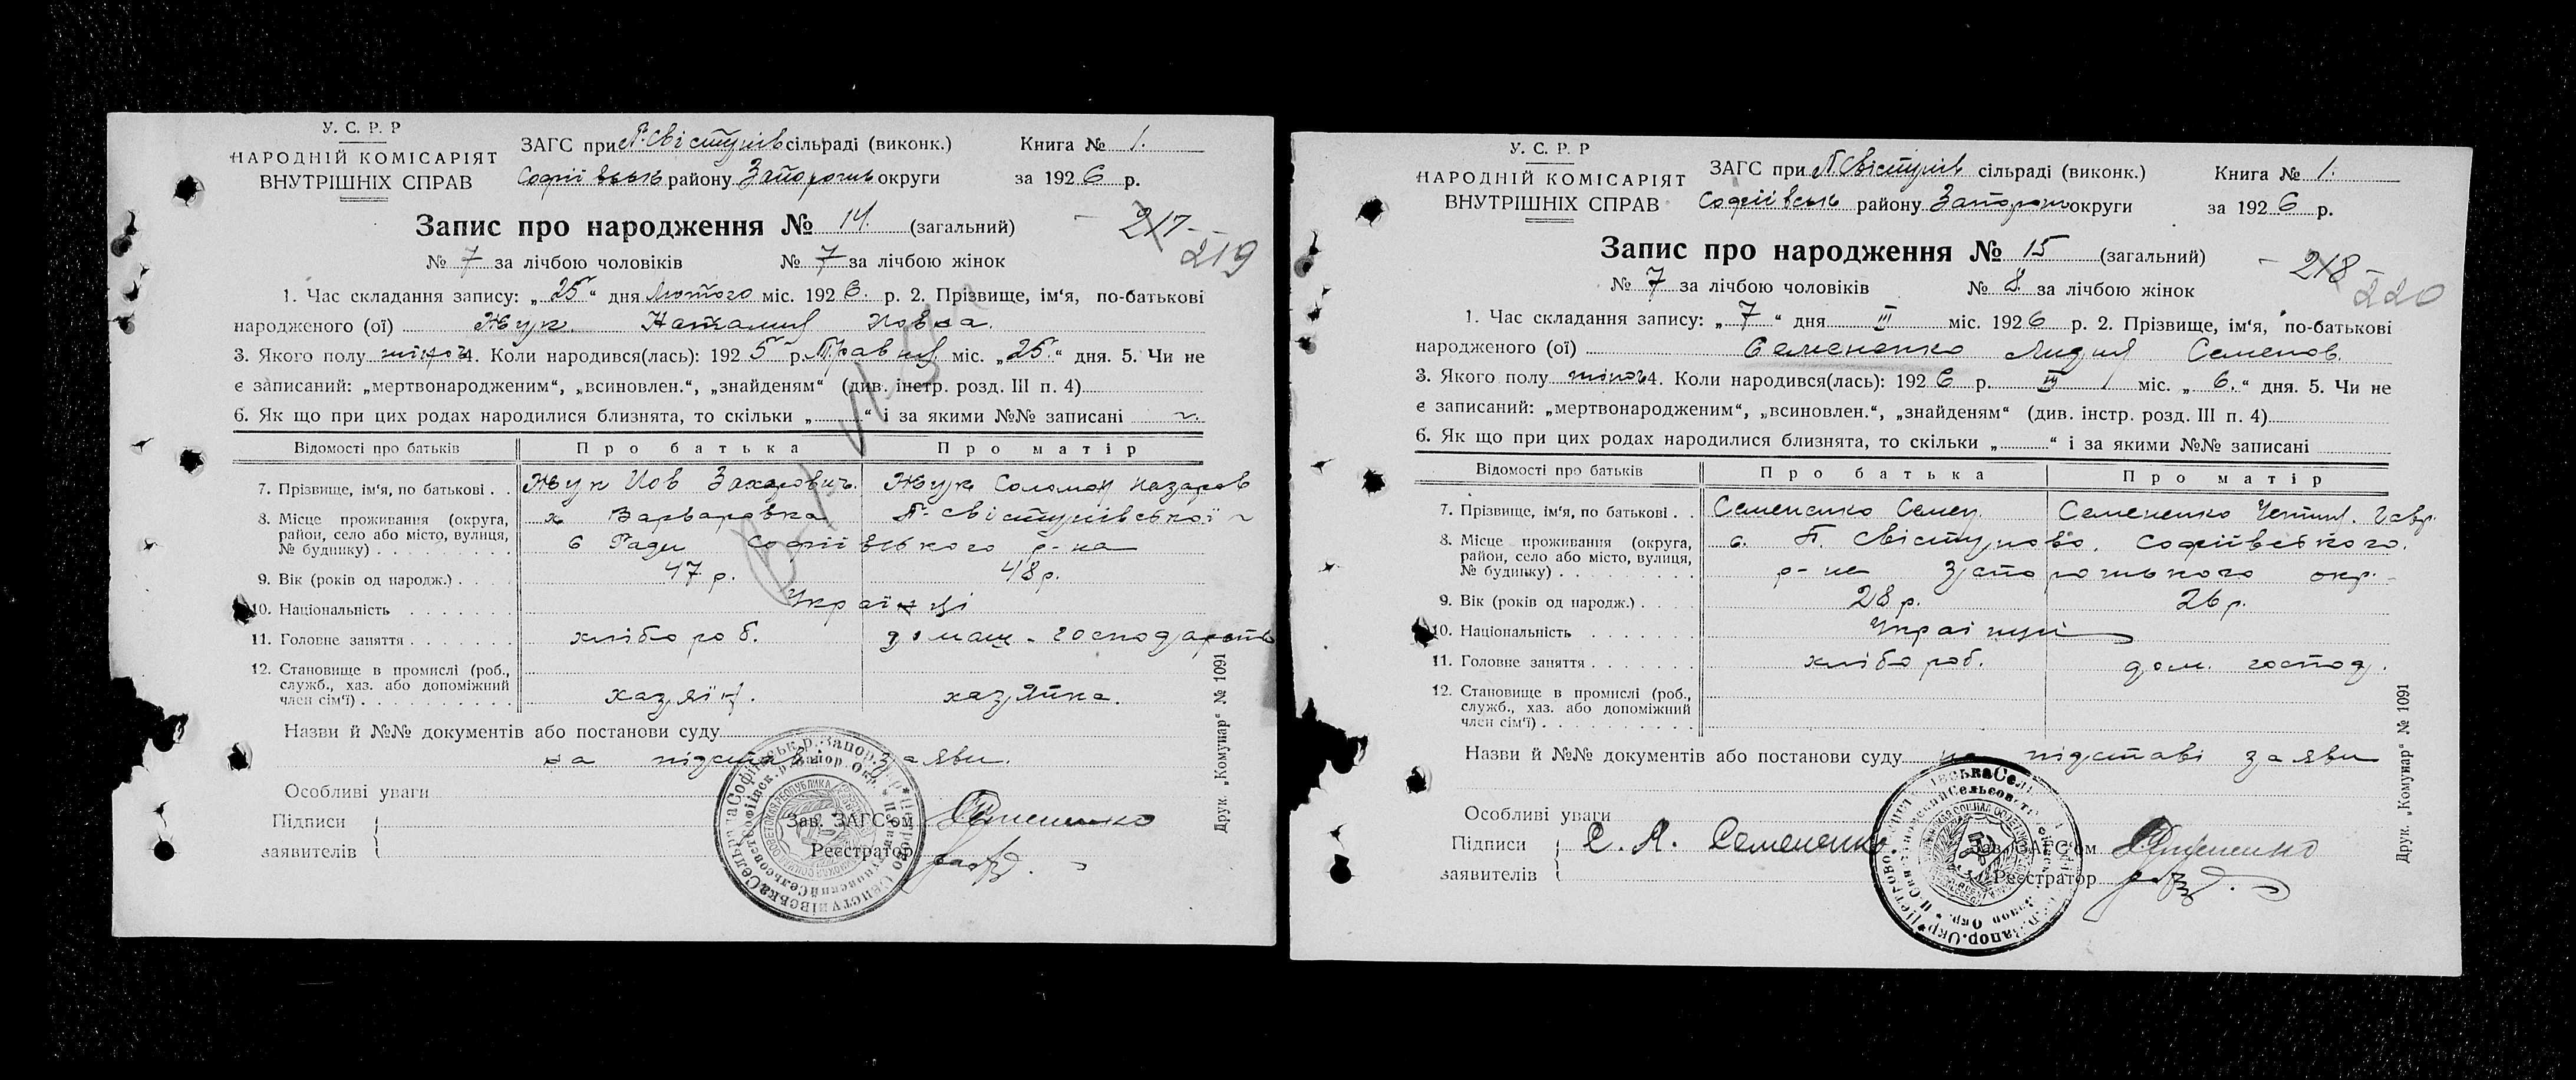 У. С. Р. Р
НАРОДНІЙ КОМІСАРІЯТ
ВНУТРІШНІХ СПРАВ
ЗАГС при П. Свістунів сільраді (виконк.)
Софіївськ району Запорожськ округи
Книга № 1.
за 1926 р.
Запис про народження № 14. (загальний)
217
219
№ 7 за лічбою чоловіків № 7 за лічбою жінок
1. Час складання запису: „25“ дня Лютого міс. 1926. р. 2. Прізвище, ім‘я, по-батькові
народженого (ої) Жук Наталия Иовва.
3. Якого полу жіноч 4. Коли народився(лась): 1925 р. Травня міс. „25.“ дня. 5. Чи не
є записаний: „мертвонародженим“, „всиновлен.“, „знайденям“ (див. інстр. розд. III п. 4)
6. Як що при цих родах народилися близнята, то скільки „ “ і за якими №№ записані
Відомості про батьків Про батька Про матір
7. Прізвище, ім‘я, по батькові . . Жук Иов Захарович. Жук Соломон Назаров
8. Місце проживання (округа, район, село або місто, вулиця, № будинку) х Варваровка П. Свістунівської
Ради Софіївського р-на
9. Вік (років од народж.) 47 р. 48 р.
10. Національність Українці
11. Головне заняття хлібороб. домаш. господарств
12. Становище в промислі (роб., служб., хаз. або допоміжний член сім‘ї) хазяїн. хазяйка.
Назви й №№ документів або постанови суду
на підставі заяви.
Особливі уваги
Підписи
заявителів
Зав. ЗАГС‘ом Семененко
Реєстратор
Друк. „Комунар“ № 1091
У. С. Р. Р
НАРОДНІЙ КОМІСАРІЯТ
ВНУТРІШНІХ СПРАВ
ЗАГС при П. Свістунів сільраді (виконк.)
Софіївськ району Запорож округи
Книга № 1.
за 1926 р.
Запис про народження № 15 (загальний)
218
220
№ 7 за лічбою чоловіків № 8. за лічбою жінок
1. Час складання запису: „7“ дня III міс. 1926 р. 2. Прізвище, ім‘я, по-батькові
народженого (ої) Семененко Лидия Семенов.
3. Якого полу жіноч 4. Коли народився(лась): 1926 р. III міс. „6.“ дня. 5. Чи не
є записаний: „мертвонародженим“, „всиновлен.“, „знайденям“ (див. інстр. розд. III п. 4)
6. Як що при цих родах народилися близнята, то скільки „ “ і за якими №№ записані
Відомості про батьків Про батька Про матір
7. Прізвище, ім‘я, по батькові . . Семененко Семен Семененко Гавр.
8. Місце проживання (округа, район, село або місто, вулиця, № будинку) с. П. Свістуново, Софіївського.
р-на Запорожського окр.
9. Вік (років од народж.) 28 р. 26 р.
10. Національність Українці
11. Головне заняття хлібороб. дом. господ.
12. Становище в промислі (роб., служб., хаз. або допоміжний член сім‘ї)
Назви й №№ документів або постанови суду на підставі заяви
Особливі уваги
Підписи
заявителів
С. Л. Семененко.
Зав. ЗАГС‘ом Семененко
Реєстратор
Друк. „Комунар“ № 1091